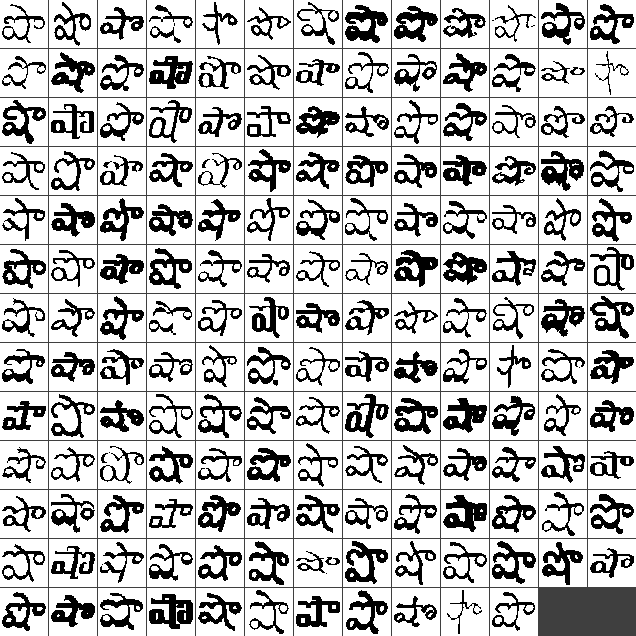 షా షా షా షా షా షా షా షా షా షా షా షా షా
షా షా షా షా షా షా షా షా షా షా షా షా షా
షా షా షా షా షా షా షా షా షా షా షా షా షా
షా షా షా షా షా షా షా షా షా షా షా షా షా
షా షా షా షా షా షా షా షా షా షా షా షా షా
షా షా షా షా షా షా షా షా షా షా షా షా షా
షా షా షా షా షా షా షా షా షా షా షా షా షా
షా షా షా షా షా షా షా షా షా షా షా షా షా
షా షా షా షా షా షా షా షా షా షా షా షా షా
షా షా షా షా షా షా షా షా షా షా షా షా షా
షా షా షా షా షా షా షా షా షా షా షా షా షా
షా షా షా షా షా షా షా షా షా షా షా షా షా
షా షా షా షా షా షా షా షా షా షా షా